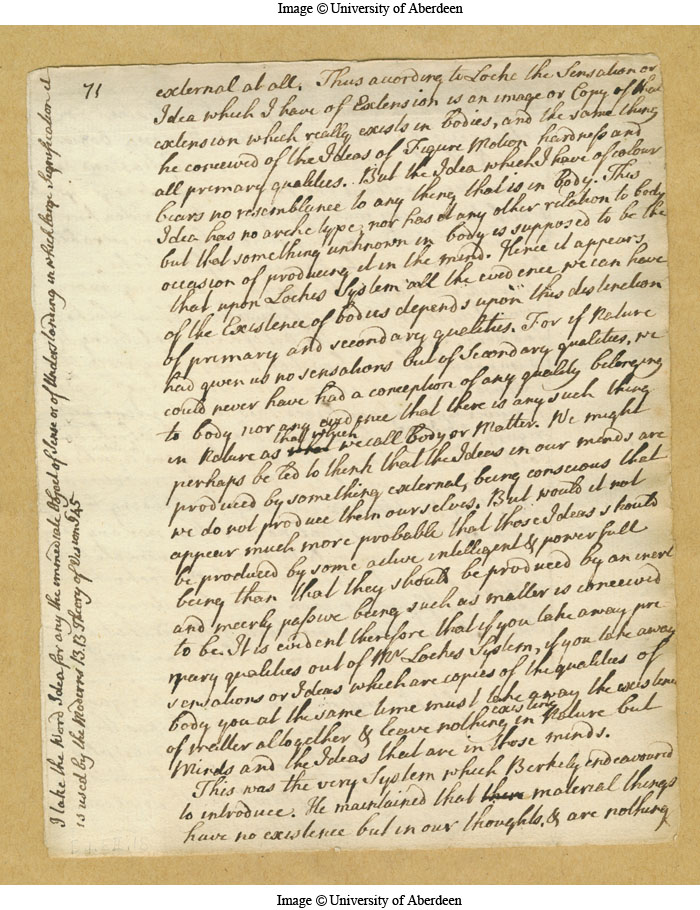 Image © University of Aberdeen
71
external at all. Thus acording to Locke the Sensation or
Idea which I have of Extension is an image or Copy of that
extension which really exists in bodies, and the same thing
he conceived of the Ideas of Figure Motion hardness and
all primary qualities. But the Idea which I have of colour
bears no resemblance to any thing that is in body. This
Idea has no archetype, nor has it any other relation to body
but that something unknown in body is supposed to be the
occasion of producing it in the mind. Hence it appears
that upon Lockes System all the evidence we can have
of the Existence of bodies depends upon this distinction
of primary and secondary qualities. For if Nature
had given us no sensations but of Secondary qualities, we
could never have had a conception of any quality belonging
to body nor any evidence that there is any such thing
in Nature as that which we call body or Matter. We might
perhaps be led to think that the Ideas in our minds are
produced by something external, being conscious that
we do not produce them ourselves. But would it not
appear much more probable that those Ideas should
be produced by some active intelligent & powerfull
being than that they should be produced by an inert
and meerly passive being such as matter is conceived
to be. It is evident therefore that if you take away pri-
mary qualities out of Mr Lockes System, if you take away
sensations or Ideas which are copies of the qualities of
body you at the same time must take away the existence
of matter altogether & leave nothing existing in Nature but
Minds and the Ideas that are in those minds.
This was the very System which Berkely endeavoured
to introduce. He maintained that material things
have no existence but in our thoughts, & are nothing
I take the Word Idea for any the immediate Object of Sense or of Understanding in which large Signification it
is used by the Moderns B.B Theory of Vision §45
Image © University of Aberdeen